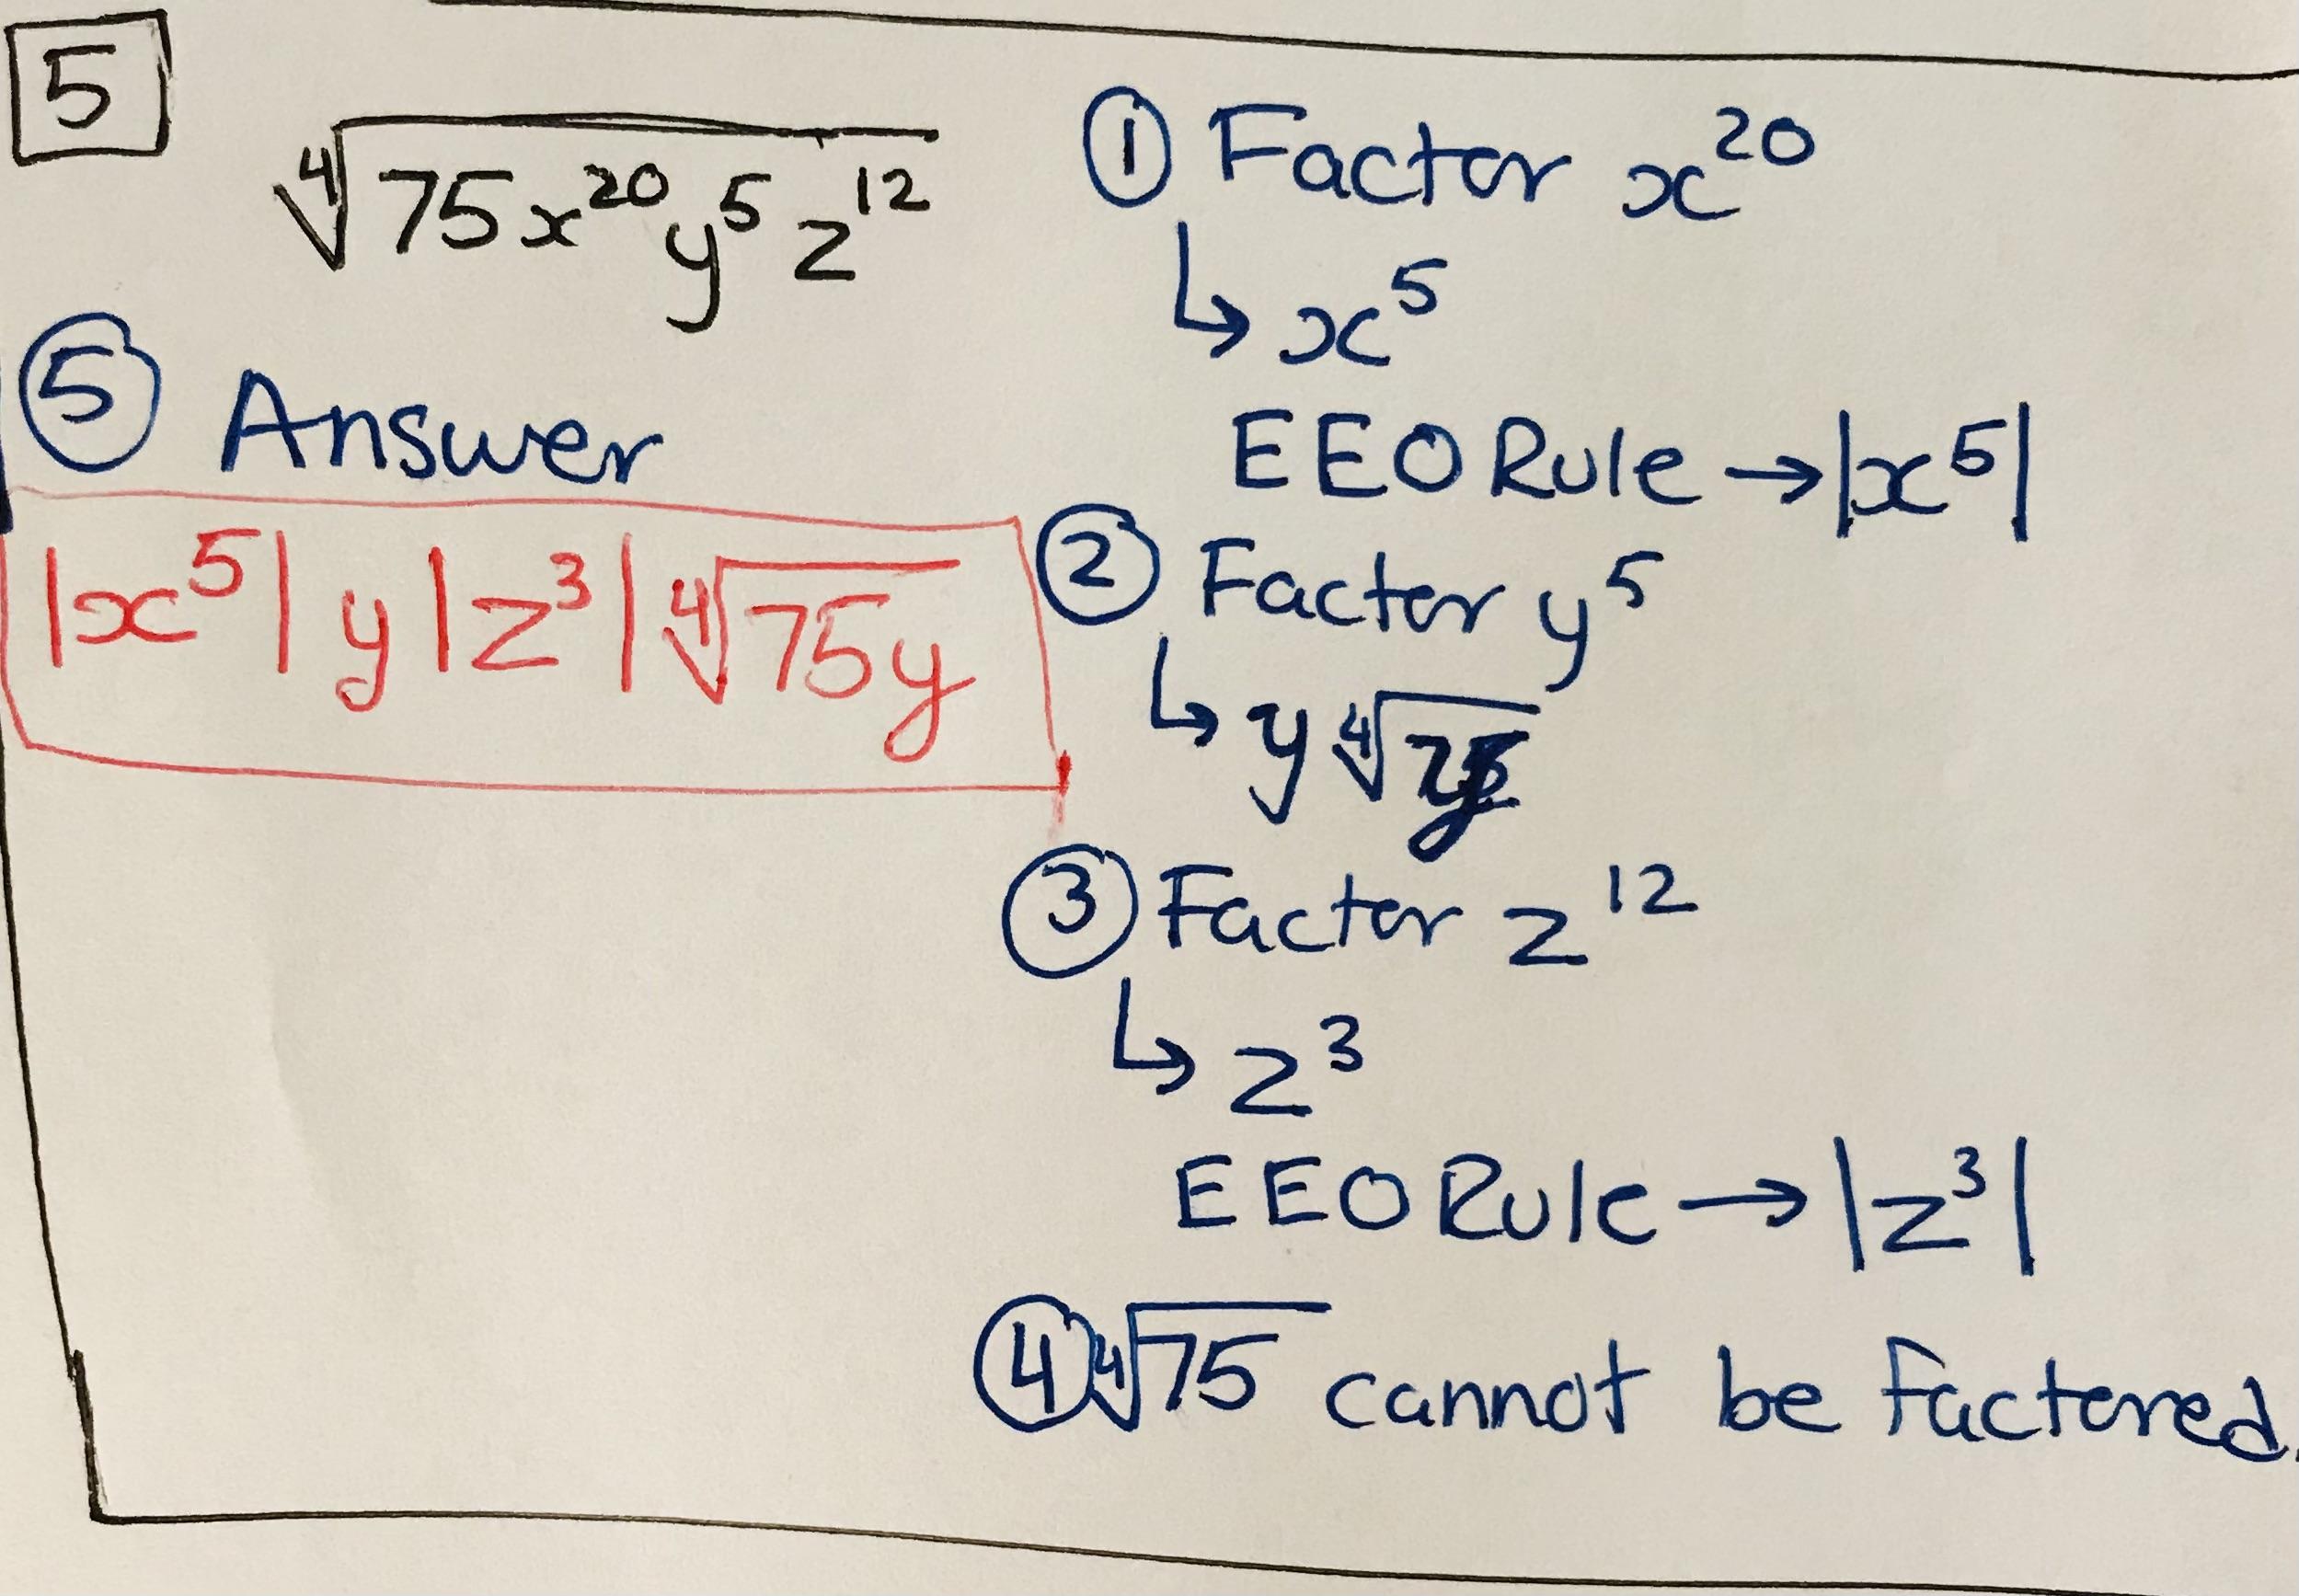 5
∜75x²⁰y⁵z¹²
① Factor x²⁰
↳ x⁵
EEO Rule → |x⁵|
② Factor y⁵
↳ y ∜
③ Factor z¹²
↳ z³
EEO Rule → |z³|
④ ∜75 cannot be factored.
⑤ Answer
|x⁵| y |z³| ∜75y